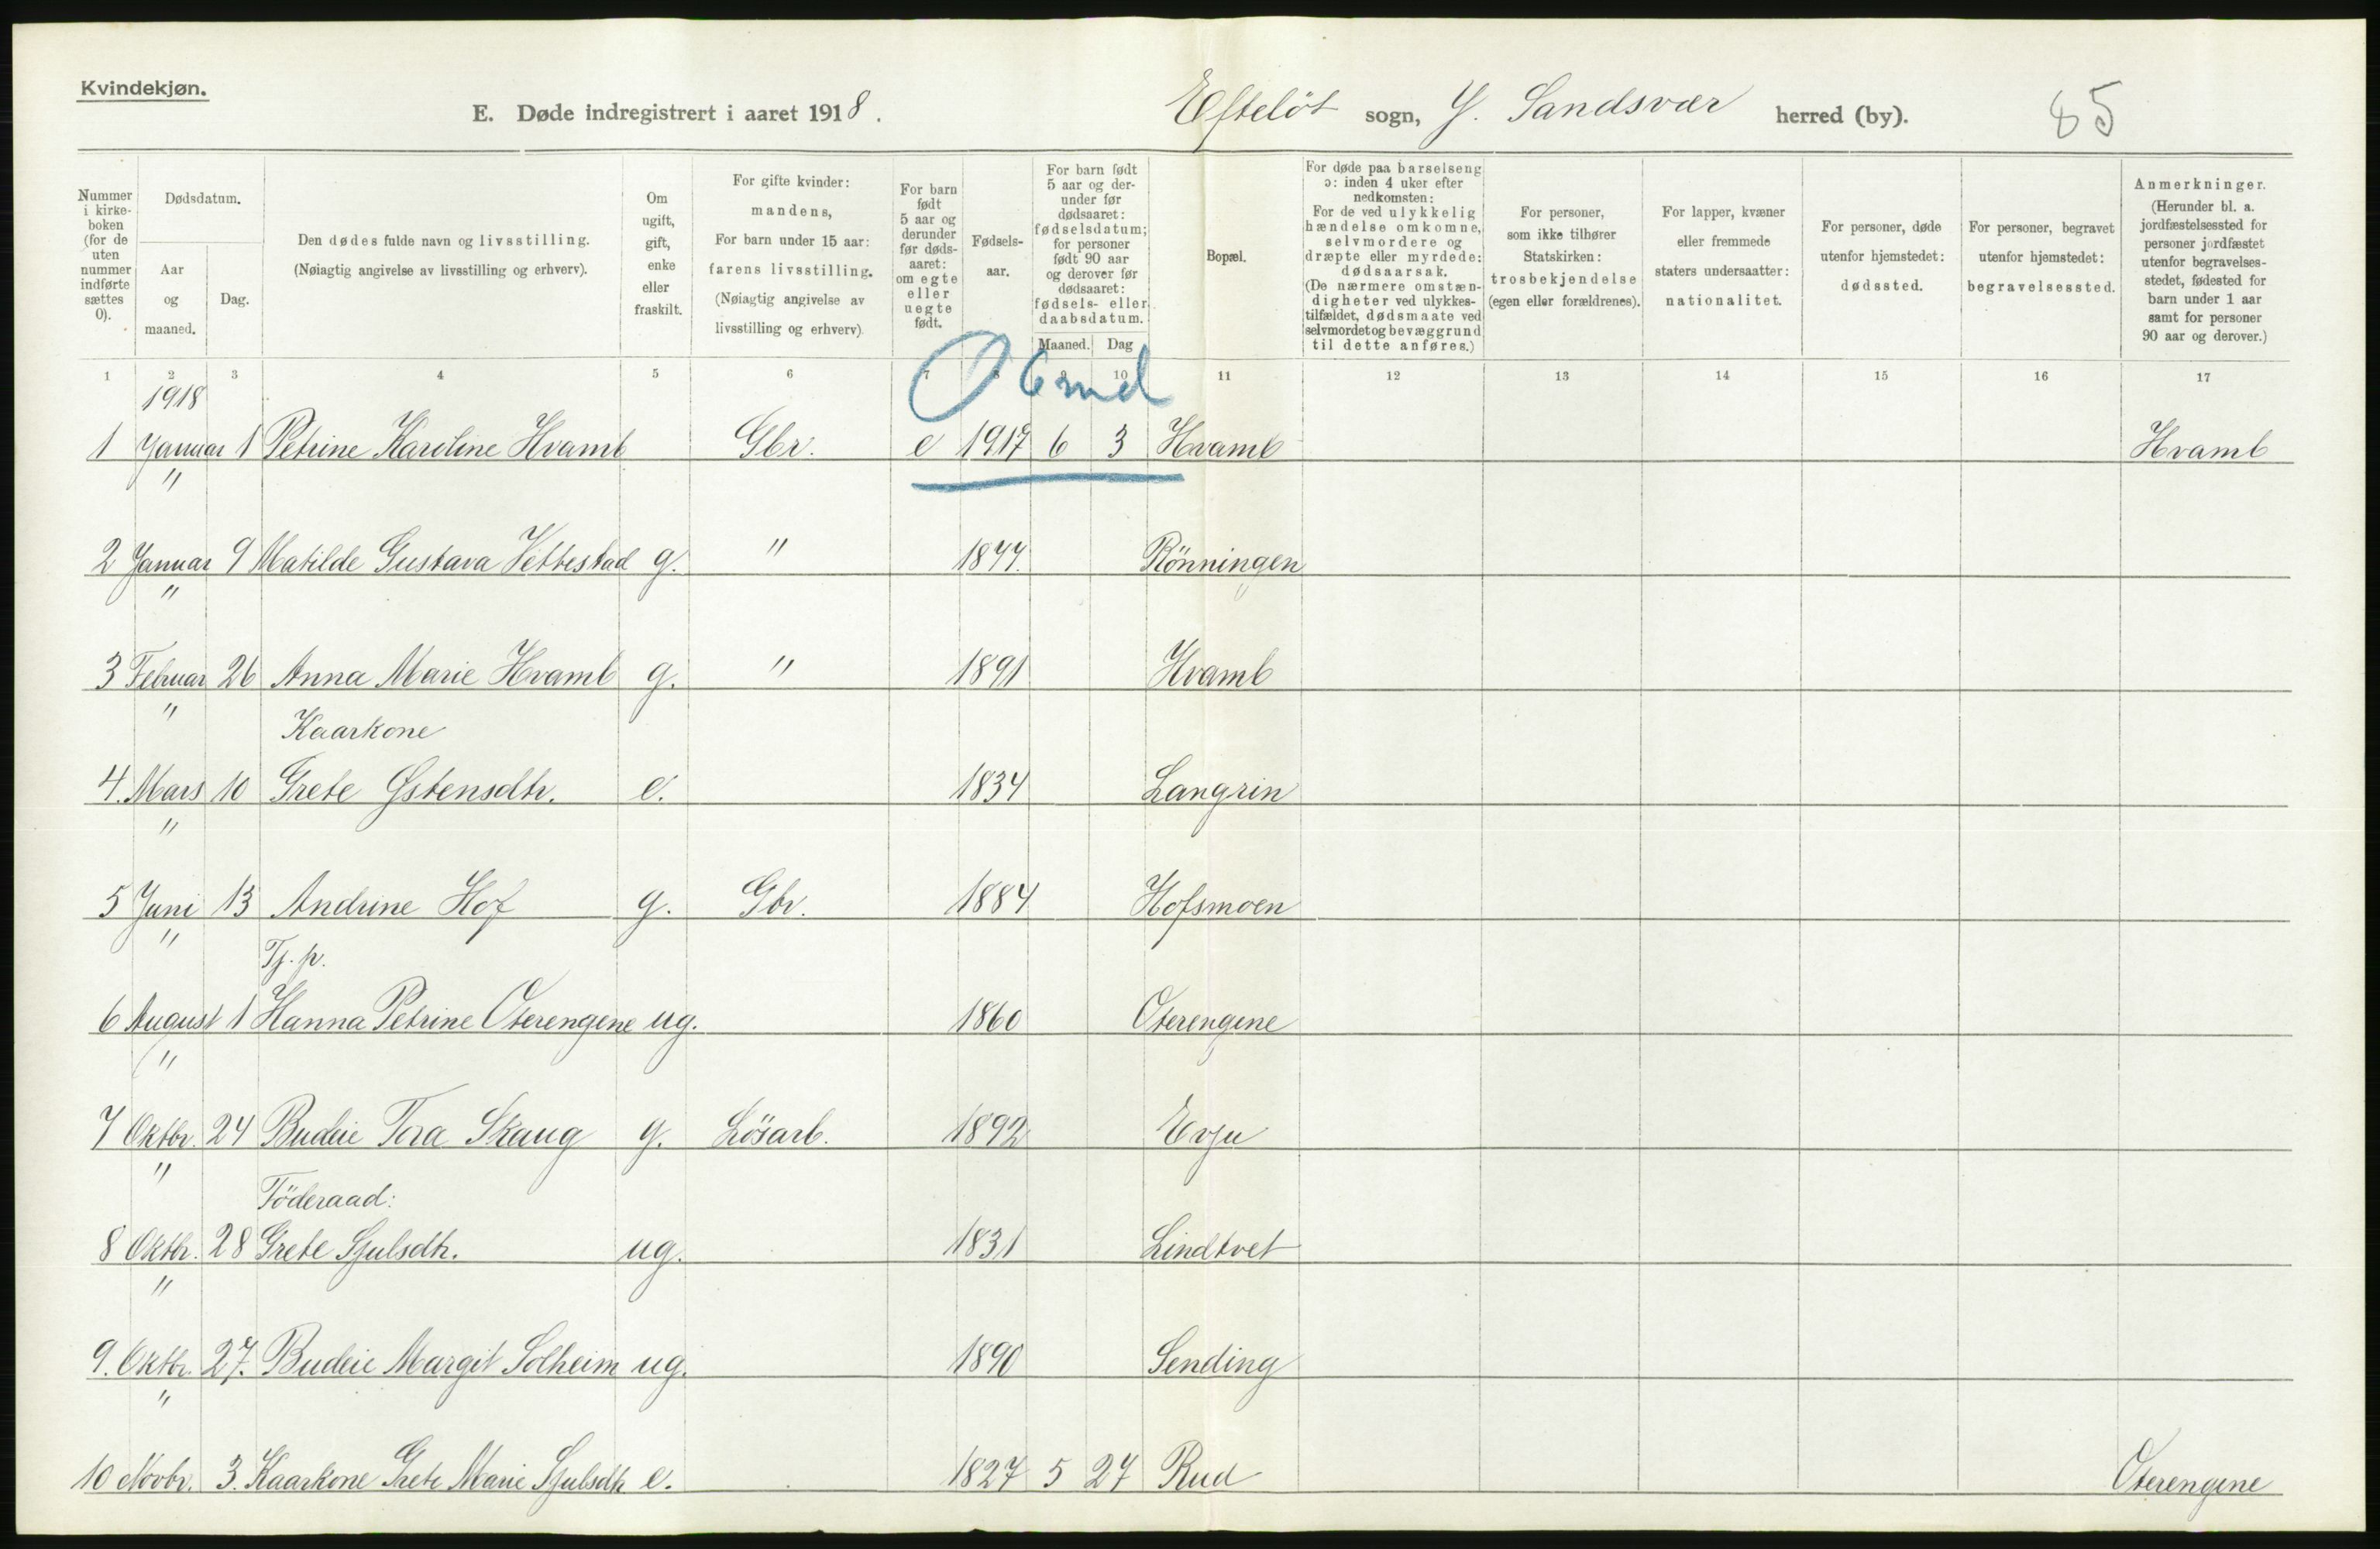 Kvindekjøn.
E. Døde indregistrert i aaret 1918.
Efteløt sogn, Y. Sandsvær herred (by).
85
Nummer i kirke-boken (for de uten nummer indførte sættes 0).
Dødsdatum.
Aar og maaned.
Dag.
Den dødes fulde navn og livsstilling.
(Nøiagtig angivelse av livsstilling og erhverv).
Om ugift, gift, enke eller fraskilt.
For gifte kvinder: mandens,
For barn under 15 aar: farens livsstilling.
(Nøiagtig angivelse av livsstilling og erhverv)
For barn født 5 aar og derunder før døds-aaret: om egte eller uegte født.
Fødsels-aar.
For barn født 5 aar og der-under før dødsaaret: fødselsdatum; for personer født 90 aar og derover før dødsaaret: fødsels- eller daabsdatum.
Maaned.
Dag
Bopæl.
For døde paa barselseng ɔ: inden 4 uker efter nedkomsten:
For de ved ulykkelig hændelse omkomne, selvmordere og dræpte eller myrdede: dødsaarsak.
(De nærmere omstæn-digheter ved ulykkes-tilfældet, dødsmaate ved selvmordet og bevæggrund til dette anføres.)
For personer, som ikke tilhører Statskirken: trosbekjendelse (egen eller forældrenes).
For lapper, kvæner eller fremmede staters undersaatter: nationalitet.
For personer, døde utenfor hjemstedet: dødssted.
For personer, begravet utenfor hjemstedet: begravelsessted.
Anmerkninger.
(Herunder bl. a. jordfæstelsessted for personer jordfæstet utenfor begravelses-stedet, fødested for barn under 1 aar samt for personer 90 aar og derover.)
1 2 3 4 5 6 7 8 9 10 11 12 13 14 15 16 17
1918
0 6 md
1 Januar 1 Petrine Karoline Hvamb Gbr. e 1917 6 3 Hvamb Hvamb
"
2 Januar 9 Matilde Gustava Vettestad g. " 1877. Rönningen
"
3 Februar 26 Anna Marie Hvamb g. " 1891 Hvamb
"
Kaarkone
4. Mars 10 Grete Østensdtr. e. 1834 Langrin
"
5 Juni 13 Andrine Hof g. Gbr. 1884 Hofsmoen
"
Tj. p.
6 August 1 Hanna Petrine Oterengene ug. 1860 Oterengene
"
7 Oktbr. 24 Budeie Tora Skaug g. Lösarb. 1892 Evju
"
Föderaad:
8 Oktbr. 28 Grete Sjulsdtr. ug. 1831 Lindtvet
"
9. Oktbr. 27. Budeie Margit Solheim ug. 1890 Sending
"
10 Novbr. 3. Kaarkone Grete Marie Sjulsdtr e. 1827 5 27 Rud Oterengene